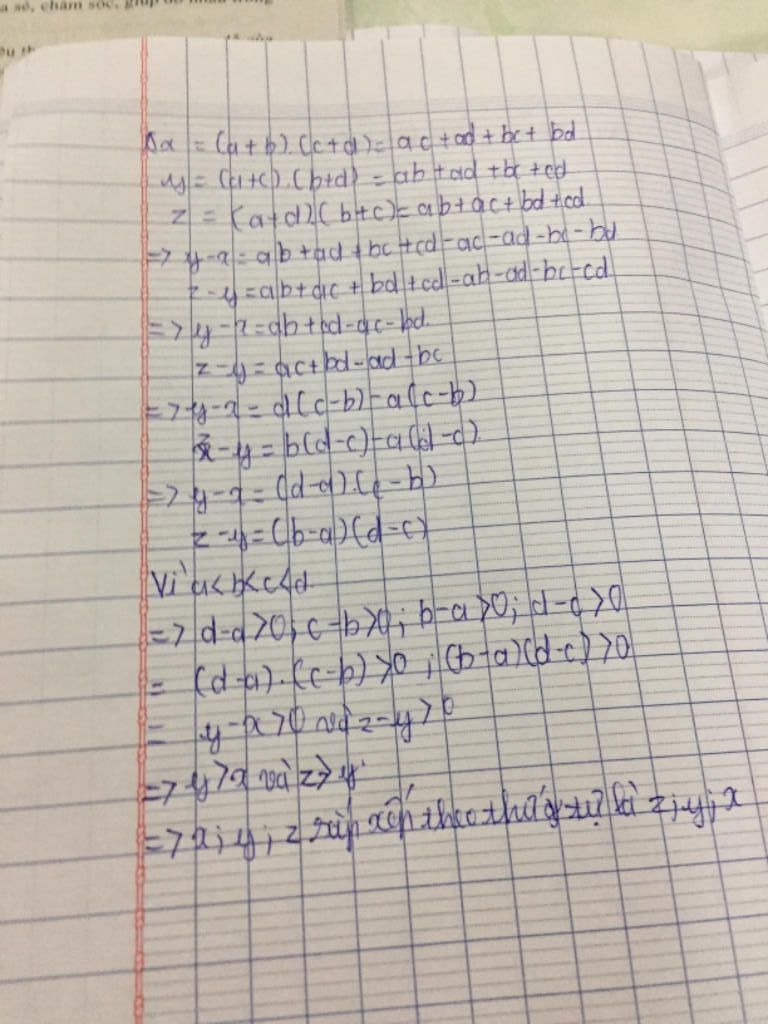 a sẻ, chăm sóc, giúp đỡ nhau trong
x = (a+b).(c+d) = ac+ad+bc+bd
y = (a+c).(b+d) = ab+ad+bc+cd
z = (a+d)(b+c) = ab+ac+bd+cd
=> y-x = ab+ad+bc+cd-ac-ad-bc-bd
z-y = ab+ac+bd+cd-ab-ad-bc-cd
=> y-x = ab+cd-ac-bd
z-y = ac+bd-ad-bc
=> y-x = d(c-b)-a(c-b)
z-y = b(d-c)-a(d-c)
=> y-x = (d-a).(c-b)
z-y = (b-a)(d-c)
Vì a<b<c<d
=> d-a>0; c-b>0; b-a>0; d-c>0
= (d-a).(c-b)>0; (b-a)(d-c)>0
= y-x>0 và z-y>0
=> y>x và z>y
=> x; y; z sắp xếp theo thứ tự là z; y; x